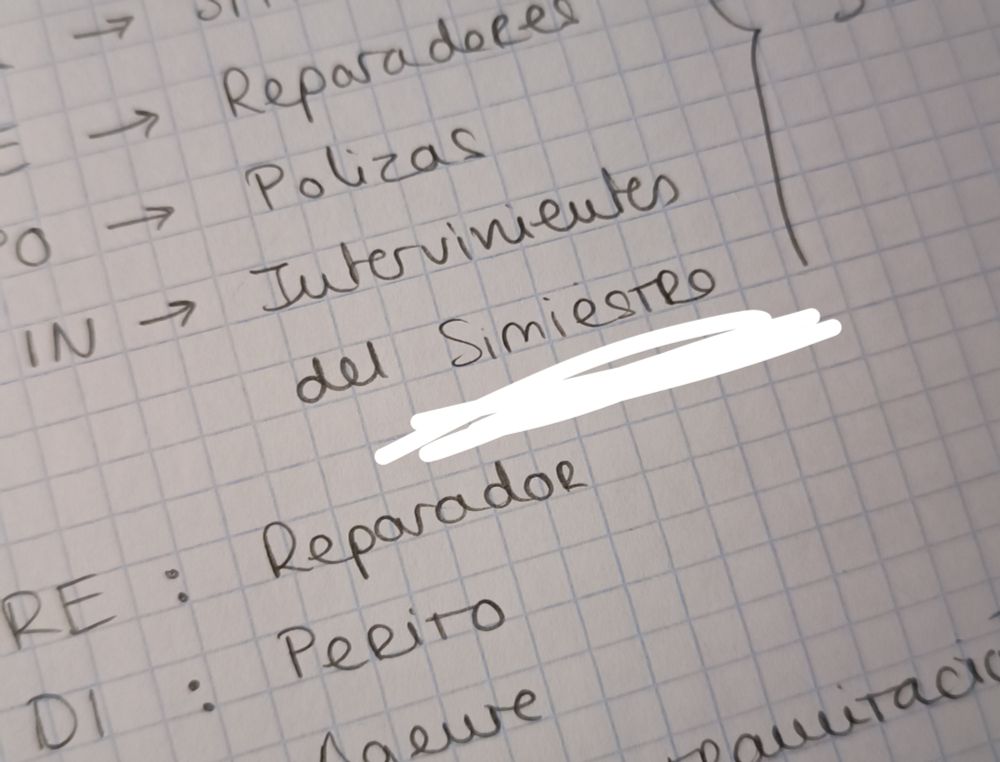 →
→ Reparadores
PO → Polizas
IN → Intervinientes
del Siniestro
RE : Reparador
DI : Perito
Agente